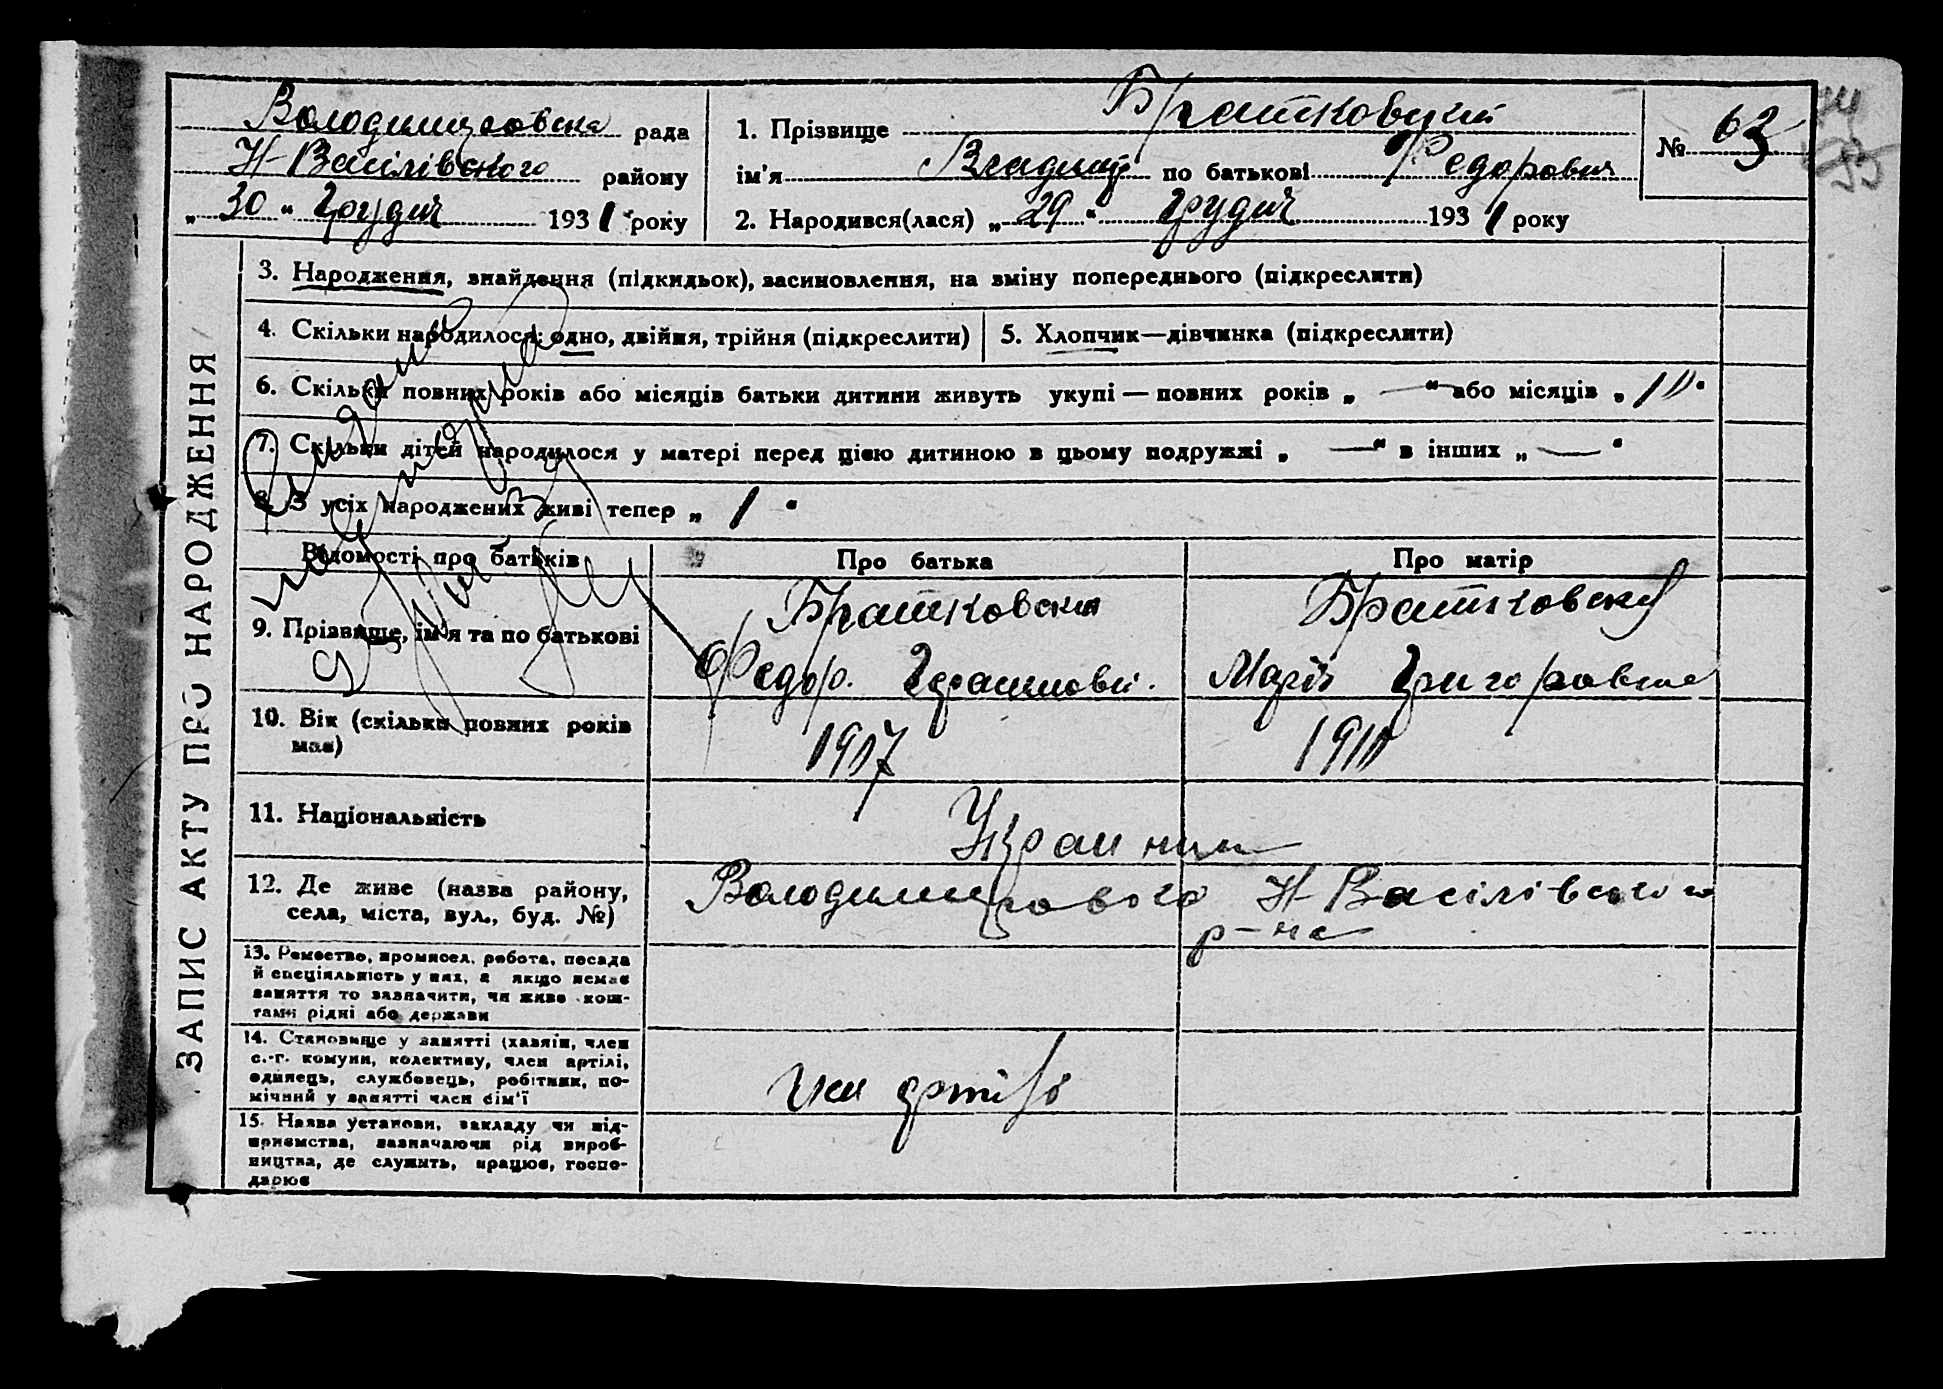 рада
Н-Василівського району
" 30 " Грудня 1931 року
1. Прізвище Братковський
ім'я Владимір по батькові Федорович
2. Народився(лася) " 29 " Грудня 1931 року
№ 63
ЗАПИС АКТУ ПРО НАРОДЖЕННЯ
3. Народження, знайдення (підкидьок), засиновлення, на зміну попереднього (підкреслити)
4. Скільки народилося: одно, двійня, трійня (підкреслити)
5. Хлопчик—дівчинка (підкреслити)
6. Скільки повних років або місяців батьки дитини живуть укупі — повних років „ — " або місяців „ 10 "
7. Скільки дітей народилося у матері перед цією дитиною в цьому подружжі „ — " в інших „ — "
8. З усіх народжених живі тепер „ 1 "
Відомості про батьків
Про батька
Про матір
9. Прізвище, ім'я та по батькові
Братковский
Федор.
Братковска
Марія Григоровна
10. Вік (скільки повних років
має)
1907
1910
11. Національність
Украинци
12. Де живе (назва району,
села, міста, вул., буд. №)
Н-Василівського
р-на
13. Ремество, промисел, робота, посада
й спеціяльність у них, а якщо немає
заняття то зазначити, чи живе кош-
тами рідні або держави
14. Становище у занятті (хазяїн, член
с.-г. комуни, колективу, член артілі,
одинець, службовець, робітник, по-
мічний у занятті член сім'ї
член артілі
15. Назва установи, закладу чи під-
приємства, зазначаючи рід вироб-
ництва, де служить, працює, госпо-
дарює